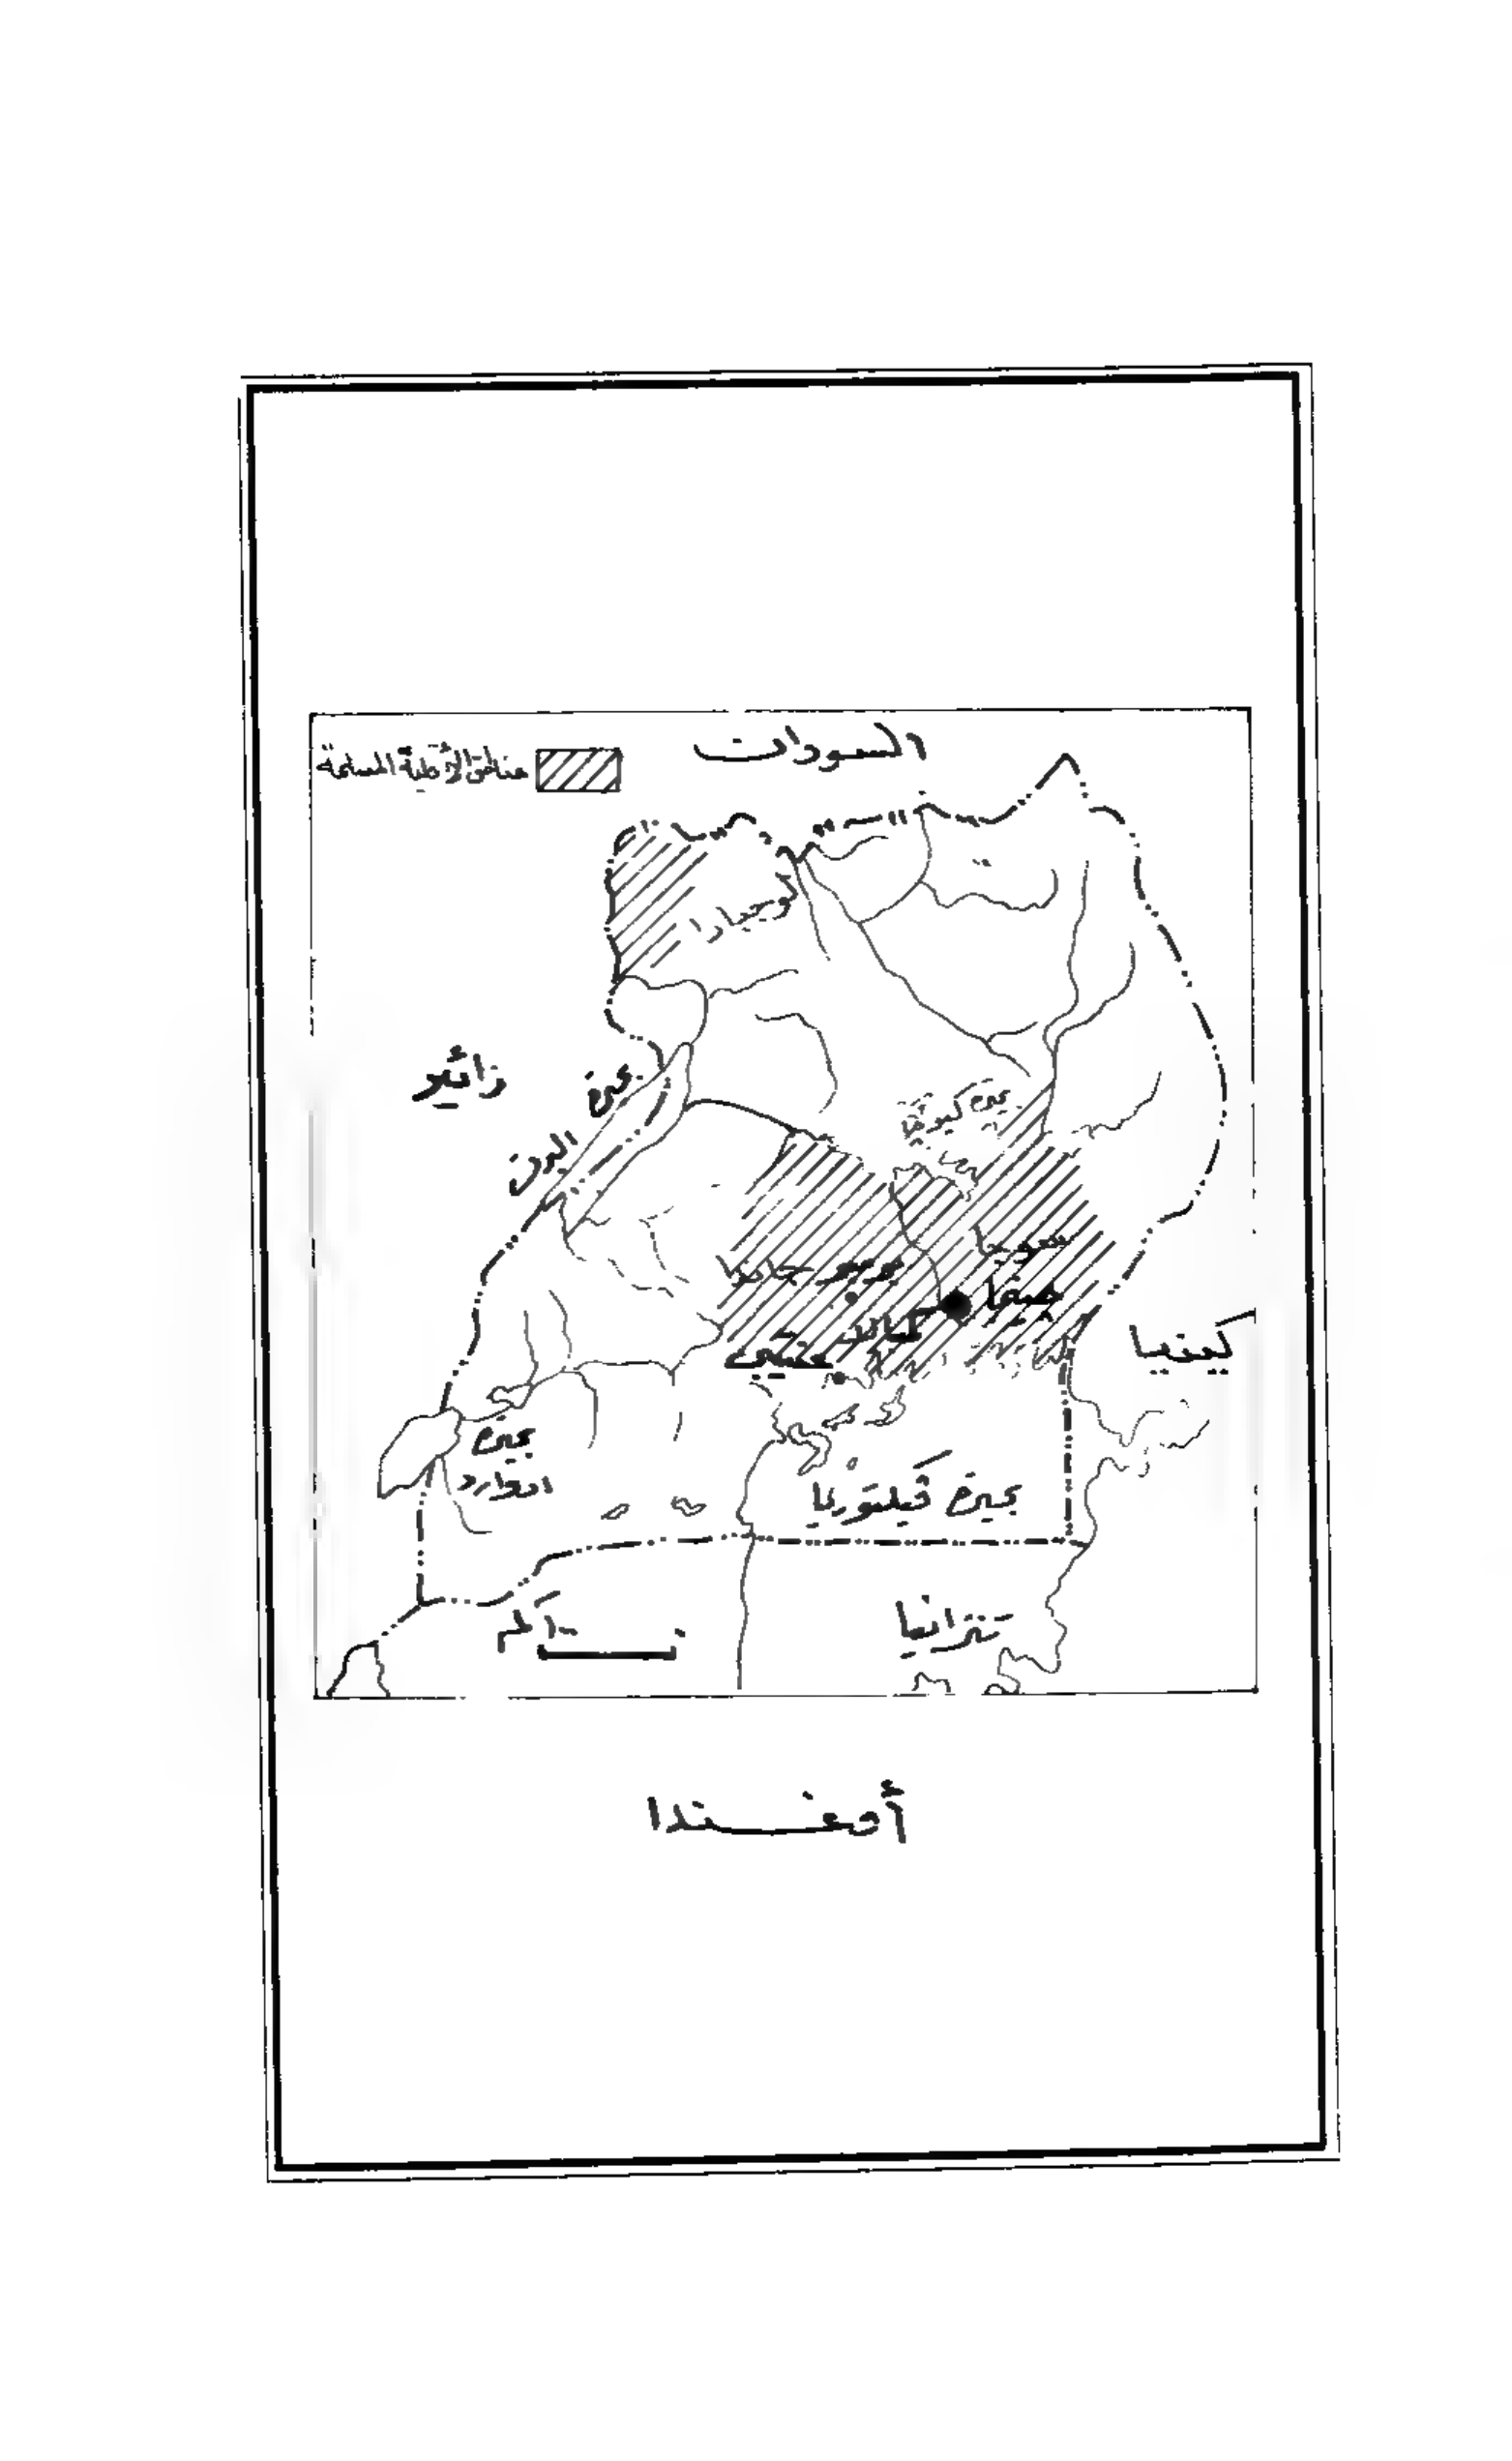 السودان
مناطق الأقلية المسلمة
زائير
بحيرة
البرت
بحيرة كيوجا
سوجا
بوجاندا
جنجا
كمبالا
عنتيبي
كينيا
بحيرة
ادوارد
بحيرة ڤيكتوريا
تنزانيا
أوغندا